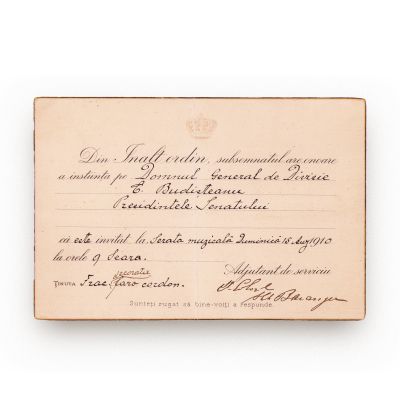 Din Inalt ordin, subsemnatul are onoare
a instiinta pe Domnul General de Divisie
C. Budisteanu
Presidintele Senatului
că este invitat la Serata muzicală Duminică 15 Aug 1910
la orele 9 Seara.
Adjutant de serviciu
ȚINUTA Frac, fara cordon.
decoratii
Sunteți rugat să bine-voiți a respunde.